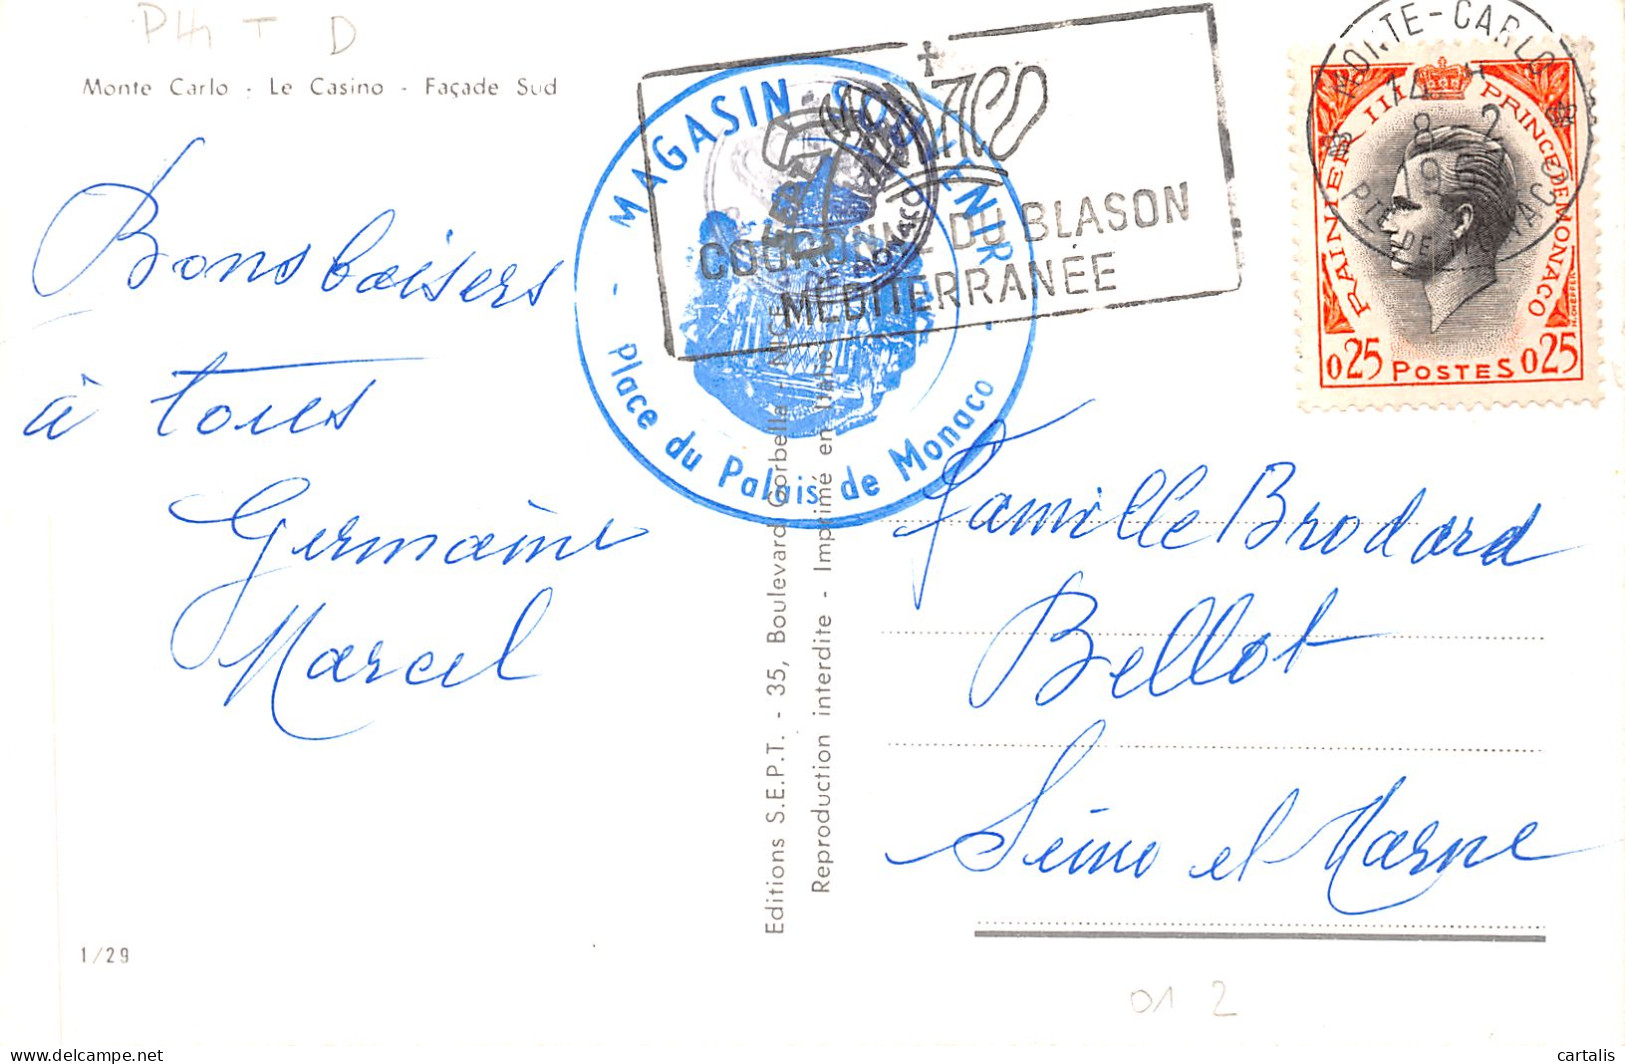 Ph T D
Monte Carlo - Le Casino - Façade Sud
Bons baisers
à tous
Germaine
Marcel
1/29
MAGASIN-SOUVENIR
Place du Palais de Monaco
MONACO
COURONNE DU BLASON
MÉDITERRANÉE
DE MONACO
Editions S.E.P.T. - 35, Boulevard Gorbella - NICE
Reproduction interdite - Imprimé en Italie
MONTE-CARLO
14 H
8 - 2
PTE DE MONACO
RAINIER III PRINCE DE MONACO
0,25 POSTES 0,25
Famille Brodard
Bellot
Seine et Marne
01 2
cartalis
delcampe.net